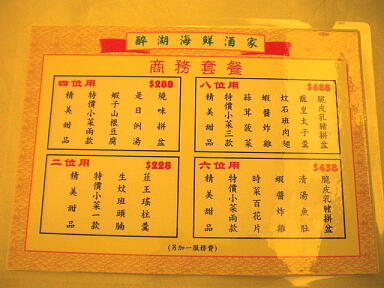 醉湖海鮮酒家
商務套餐
四位用 $288
燒味拼盆
是日例湯
蝦子山根豆腐
特價小菜兩款
精美甜品
八位用 $688
脆皮乳豬拼盆
龍皇太子羹
蚊石班肉翅
蝦醬炸雞
蒜茸菠菜
特價小菜三款
精美甜品
二位用 $228
瑤柱羹
生炆班頭腩
特價小菜一款
精美甜品
六位用 $438
脆皮乳豬拼盆
清湯魚肚
蝦醬炸雞
時菜百花片
特價小菜兩款
精美甜品
(另加一服務費)